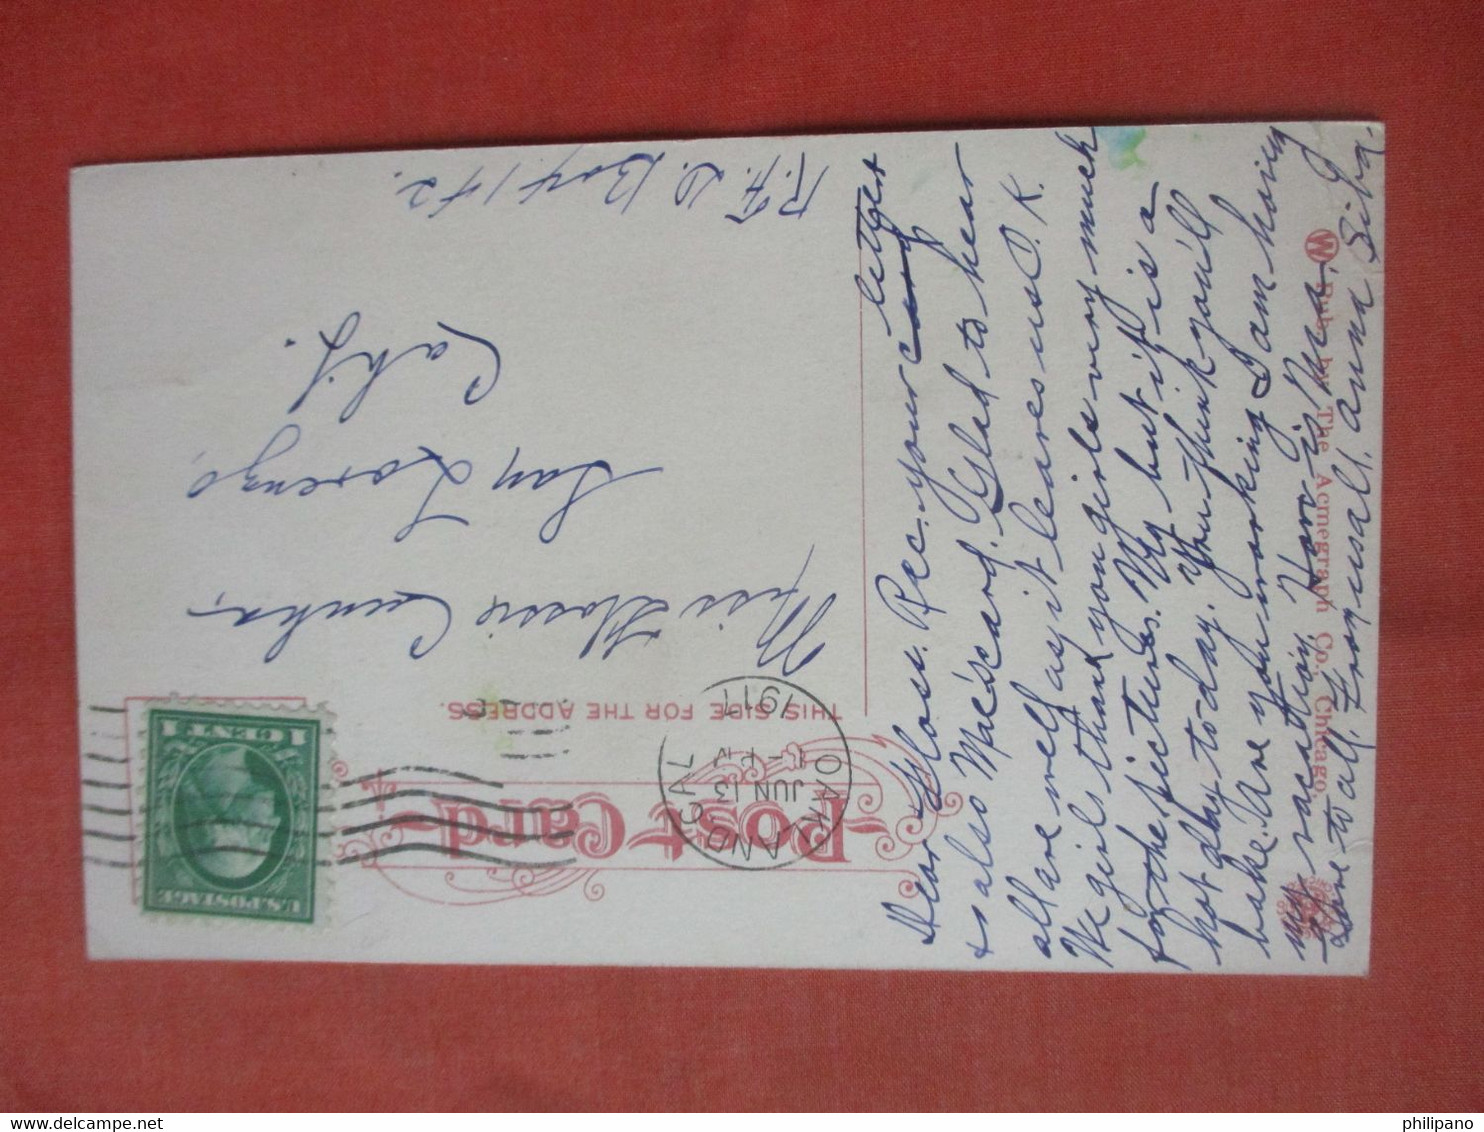 Post Card
THIS SIDE FOR THE ADDRESS.
OAKLAND CAL
JUN 13
1 - PM
1917
U.S. POSTAGE
1 CENT 1
Miss Flossie Cunha,
San Lorenzo,
Calif.
R.F.D. Box 142.
Dear Floss. Rec. your card letter
& also Mae's card. Glad to hear
all are well as it leaves us O.K.
We girls thank you girls very much
for the pictures. My but it is a
hot day to-day. You think you'll
bake. Are you working I am having
my vacation How is Mea.
Love to all. From us all. Anna Biba.
W Pub. by The Acmegraph Co., Chicago
philipano